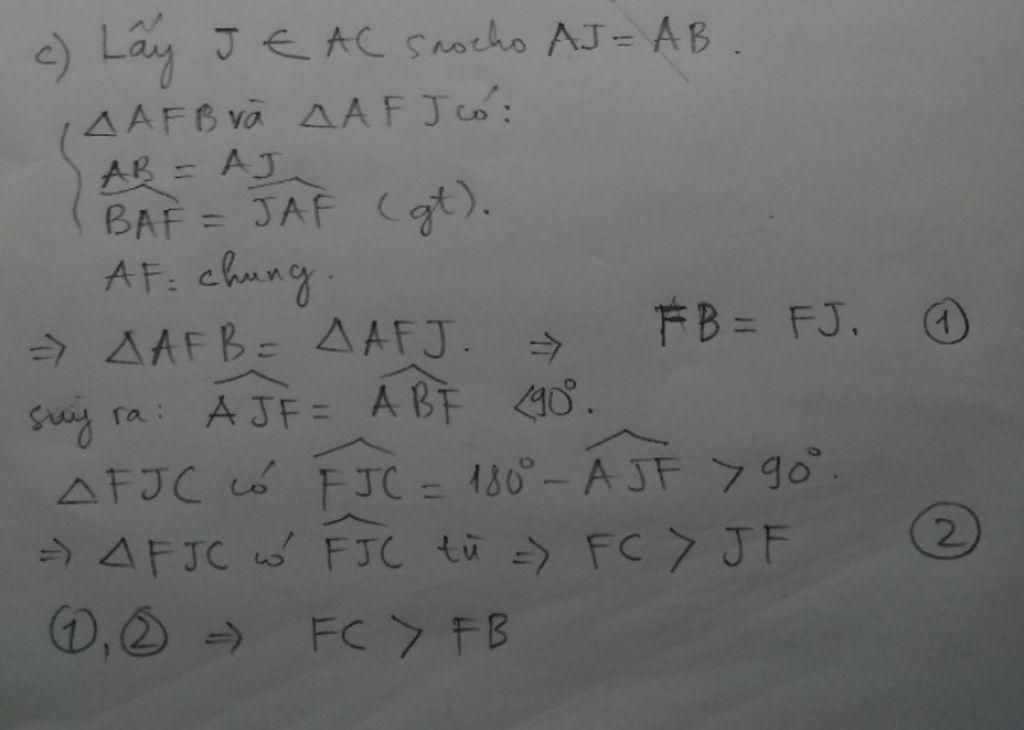 c) Lấy J ∈ AC sao cho AJ = AB.
△AFB và △AFJ có:
AB = AJ
\widehat{BAF} = \widehat{JAF} (gt).
AF: chung.
⇒ △AFB = △AFJ. ⇒ FB = FJ. ①
suy ra: \widehat{AJF} = \widehat{ABF} <90°.
△FJC có \widehat{FJC} = 180° - \widehat{AJF} > 90°.
⇒ △FJC có \widehat{FJC} tù ⇒ FC > JF ②
①, ② ⇒ FC > FB